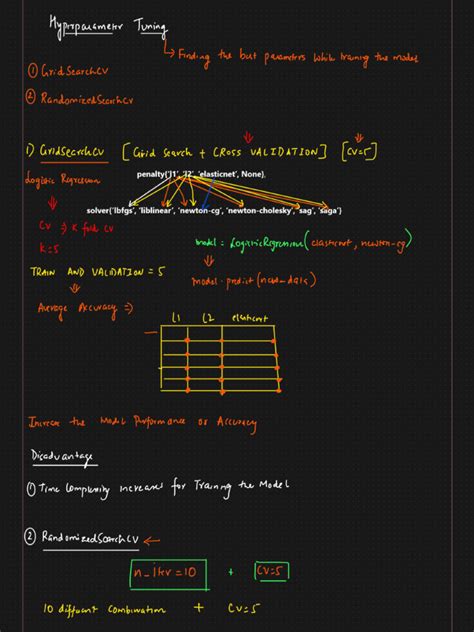 Hyperparameter Tuning
↳ Finding the best parameters while training the model
① GridSearchCV
② RandomizedSearchCV
1) GridSearchCV [Grid search + CROSS VALIDATION] [CV=5]
penalty('l1', 'l2', 'elasticnet', None),
Logistic Regression
solver('lbfgs', 'liblinear', 'newton-cg', 'newton-cholesky', 'sag', 'saga')
CV ⇒ K fold CV
K=5
model = LogisticRegression(elasticnet, newton-cg)
TRAIN AND VALIDATION = 5
model.predict(new_data)
Average Accuracy ⇒
l1 l2 elasticnet
Increase the Model Performance or Accuracy
Disadvantage
① Time Complexity increases for Training the Model
② RandomizedSearchCV ←
n_iter=10 + CV=5
10 different combination + CV=5